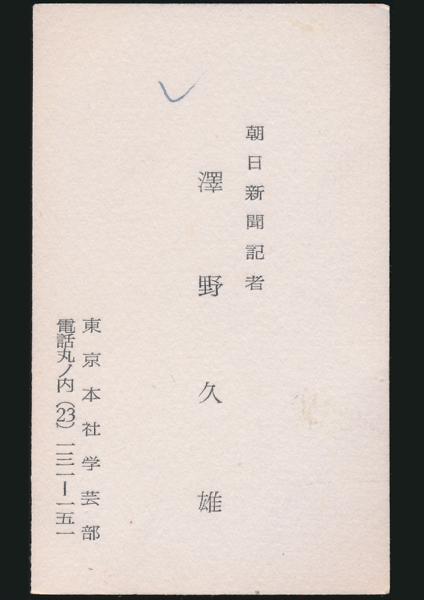 朝日新聞記者
澤野久雄
東京本社学芸部
電話丸ノ内(23)一三一ー一五一